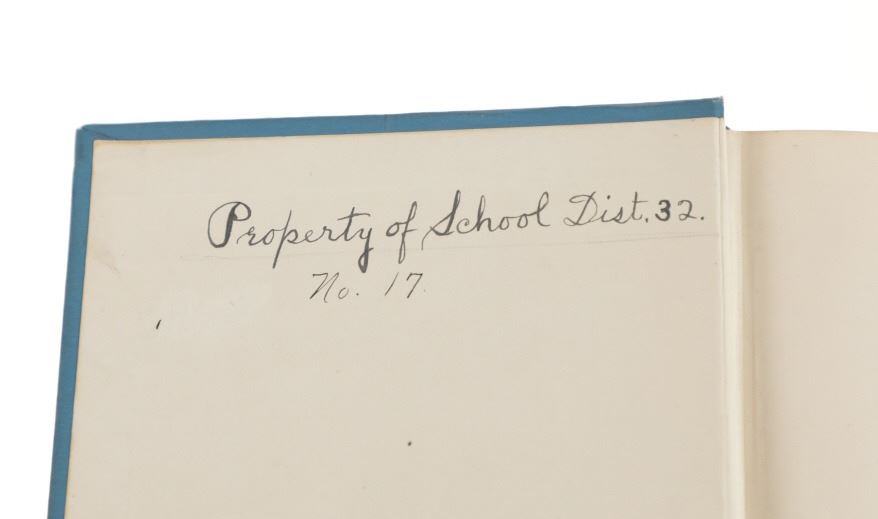 Property of School Dist. 32.
No. 17.